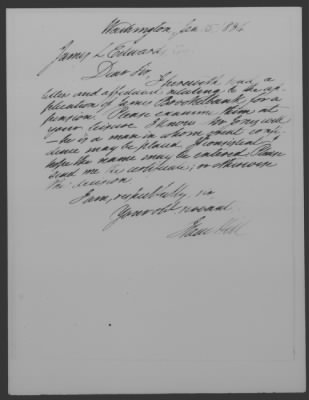 Washington, Jan 5, 1836
James L Edwards Esq.
Dear Sir,
I herewith send a
letter and affidavit relating to the ap-
plication of James for a
pension. Please examine them at
your leisure. I know
— he is a man in whom great confi-
dence may be placed. If consistent I
hope the name may be entered. Please
send me the certificate, or otherwise
the decision
I am, respectfully, sir
Your obt servant
Isaac Hill